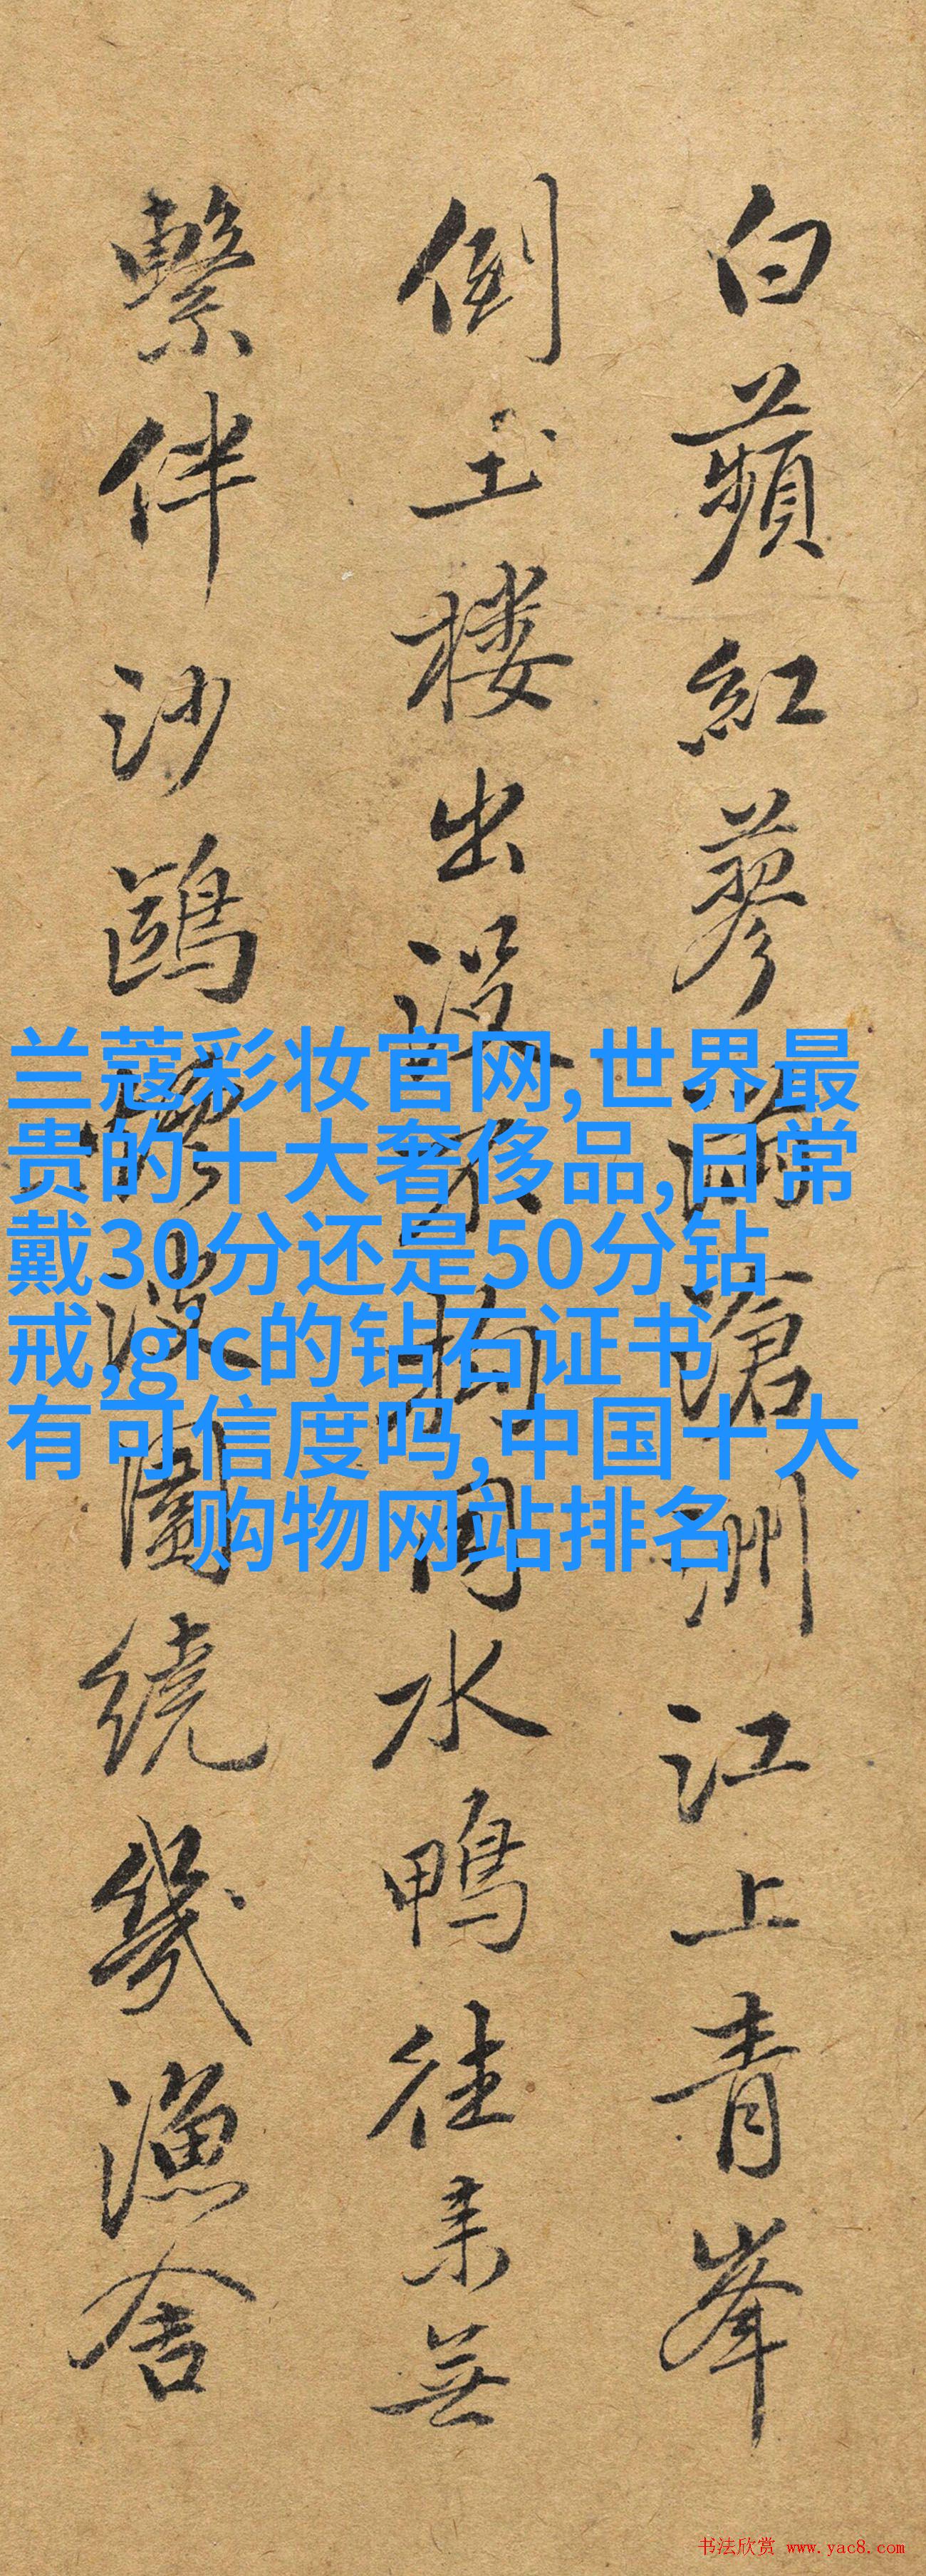 白蘋紅蓼滿滄洲江上青峯
倒玉楼出没不拘水鴨往来無
繫伴沙鷗波圍繞幾漁舍
兰蔻彩妆官网,世界最
贵的十大奢侈品,日常
戴30分还是50分钻
戒,gic的钻石证书
有可信度吗,中国十大
购物网站排名
书法欣赏 www.yac8.com